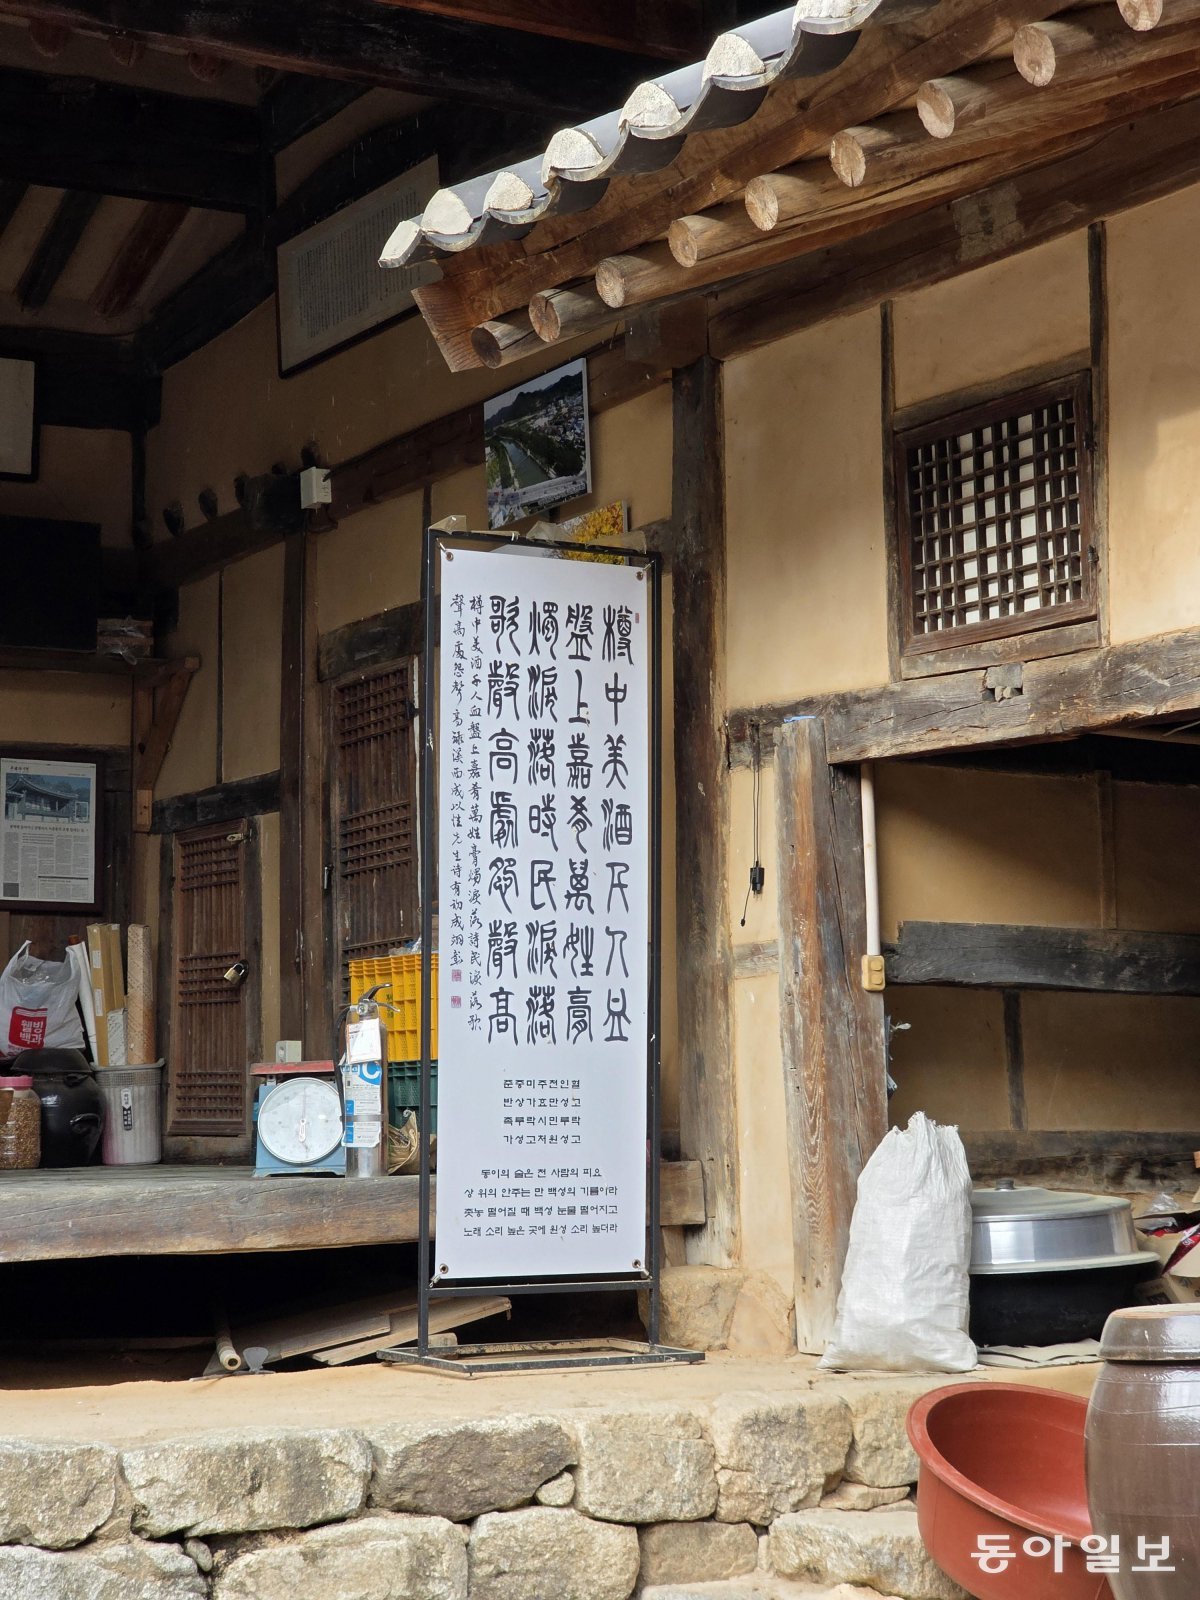 樽中美酒千人血
盤上嘉肴萬姓膏
燭淚落時民淚落
歌聲高處怨聲高
樽中美酒千人血盤上嘉肴萬姓膏燭淚落時民淚落歌
聲高處怨聲高 溪西成以性先生詩
준중미주천인혈
반상가효만성고
촉루락시민루락
가성고처원성고
동이의 술은 천 사람의 피요
상 위의 안주는 만 백성의 기름이라
촛농 떨어질 때 백성 눈물 떨어지고
노래 소리 높은 곳에 원성 소리 높더라
웰빙
백과
동아일보